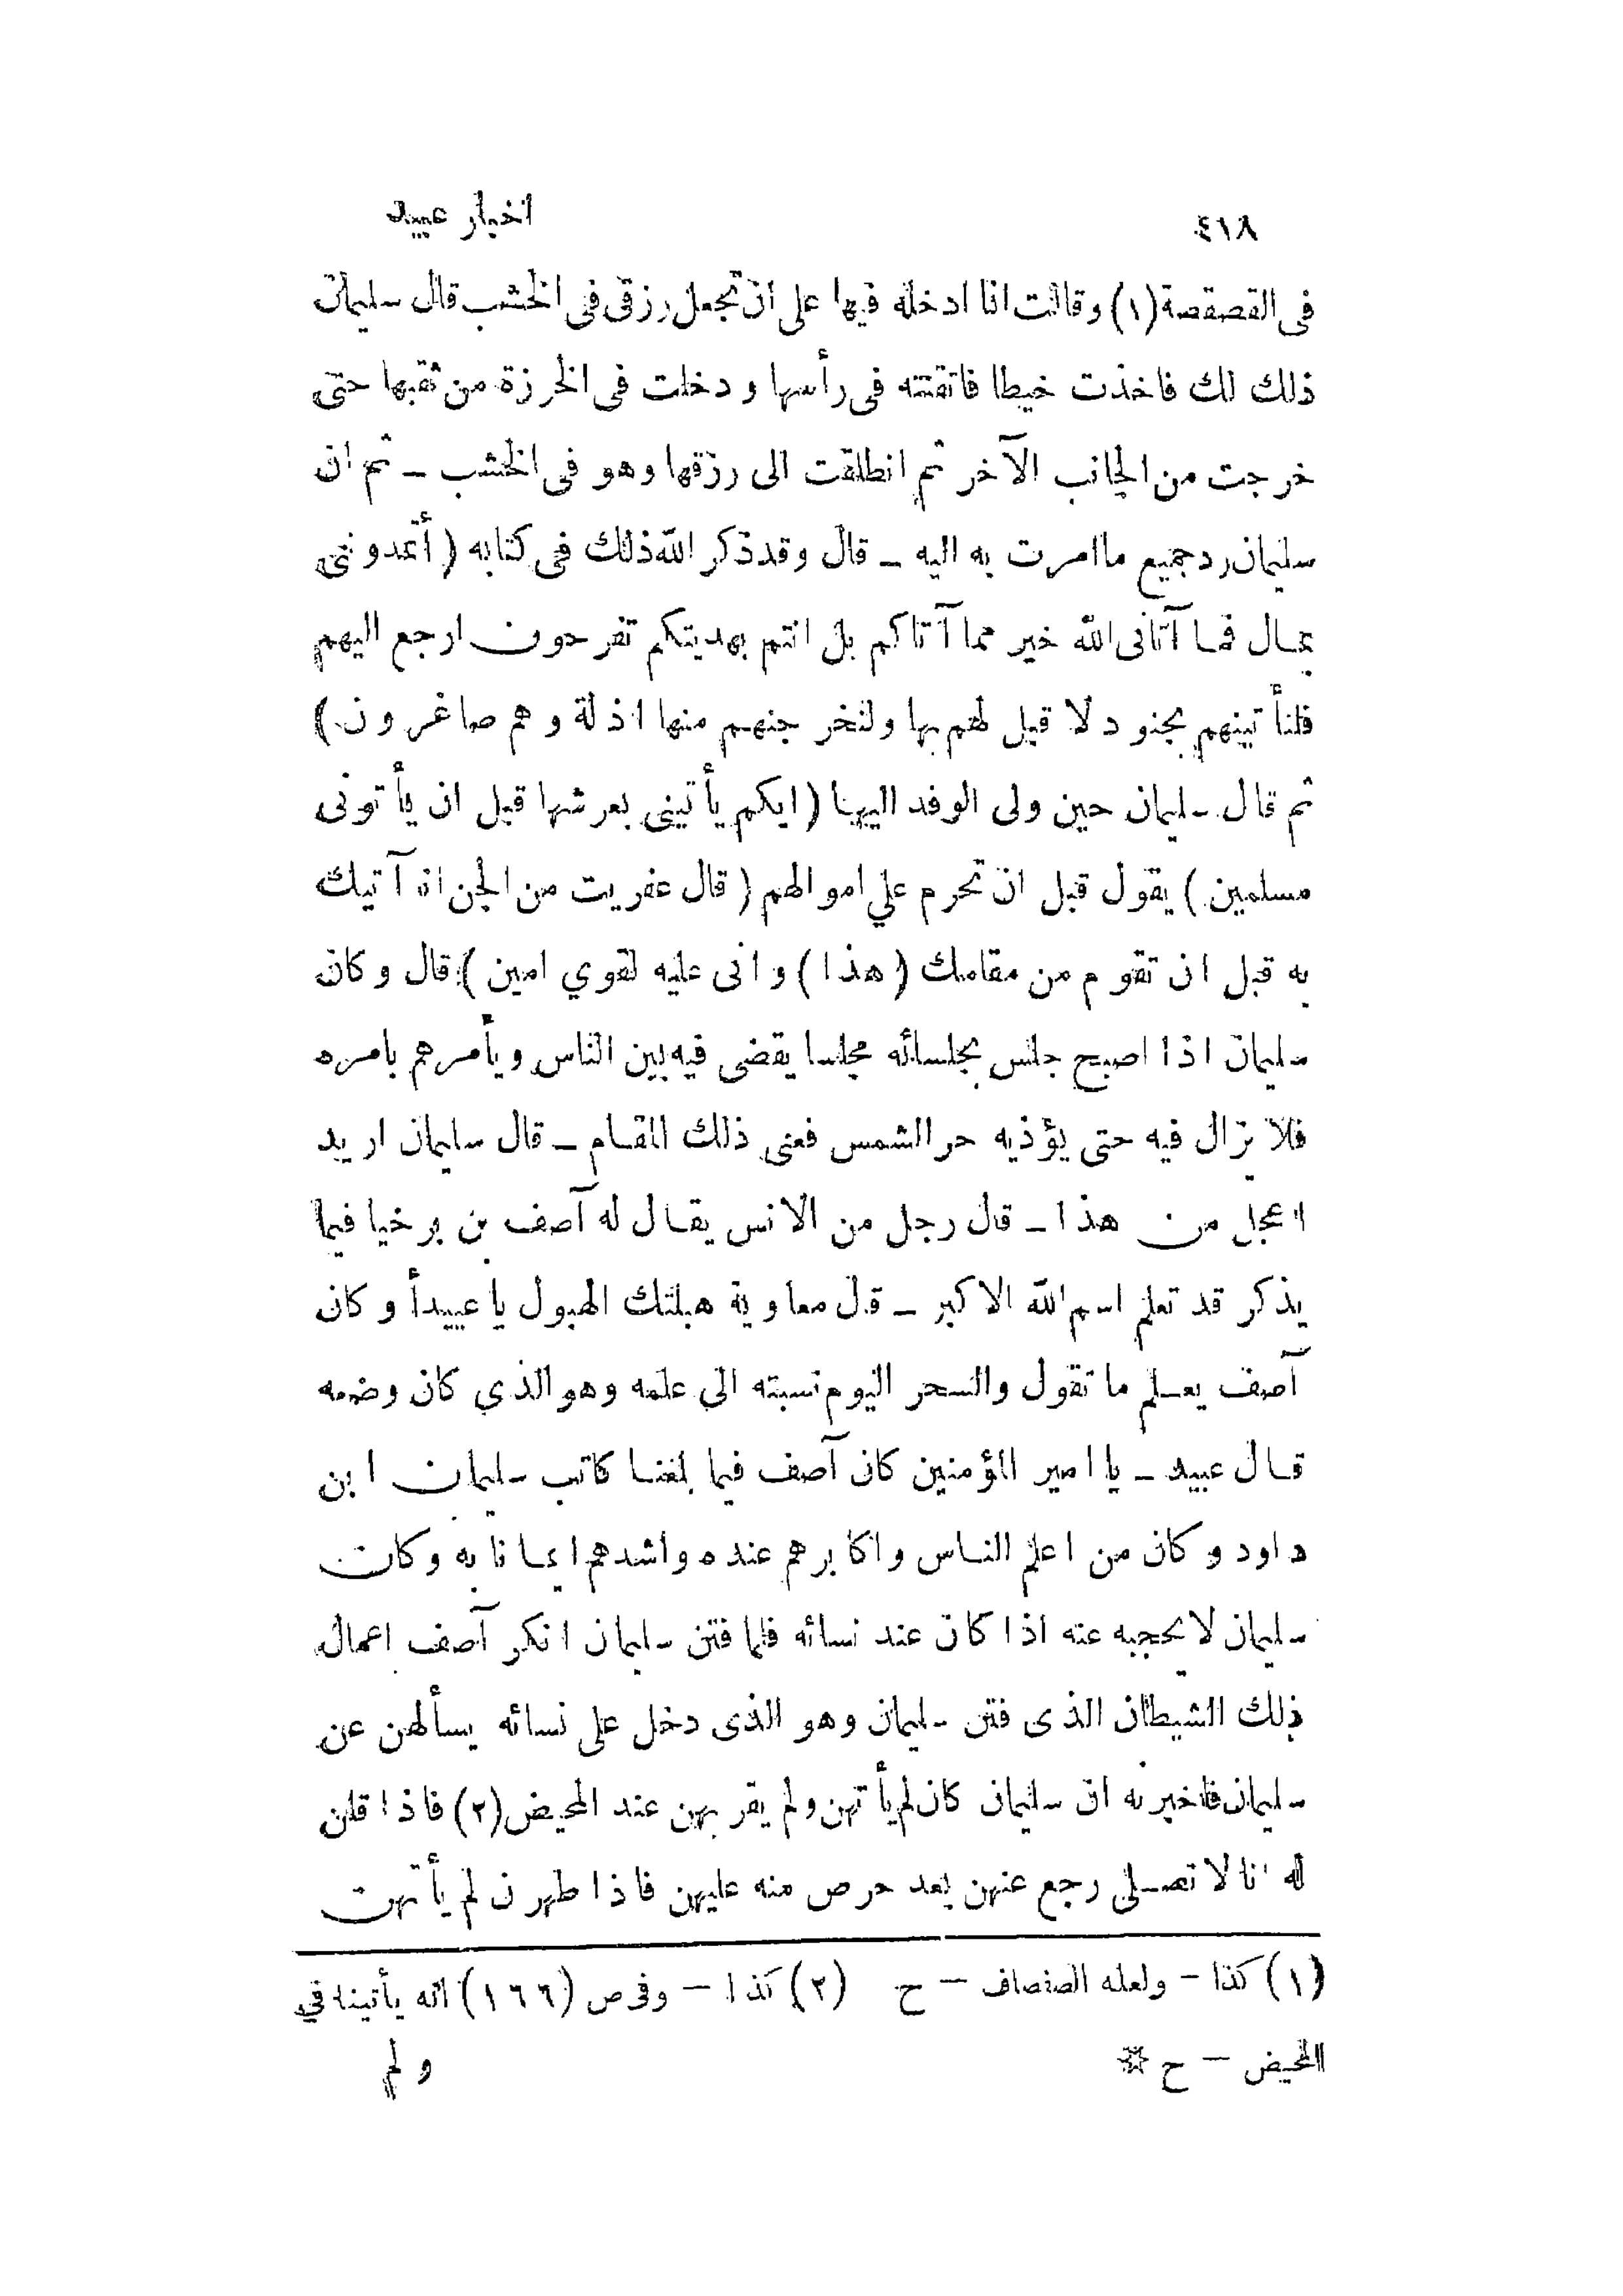 ٤١٨
اخبار عبيد
فى القصقصة(١) وقالت انا ادخله فيها على ان تجعل رزقى فى الخشب قال سليمان
ذلك لك فاخذت خيطا فاتقنته فى رأسها ودخلت فى الخرزة من ثقبها حتى
خرجت من الجانب الآخر ثم انطلقت الى رزقها وهو فى الخشب ـ ثم ان
سليمان رد جميع ما امرت به اليه ـ قال وقد ذكر الله ذلك فى كتابه (أتمدوننى
بمال فما آتانى الله خير مما آتاكم بل انتم بهديتكم تفرحون ارجع اليهم
فلنأتينهم بجنود لا قبل لهم بها ولنخرجنهم منها اذلة وهم صاغرون)
ثم قال سليمان حين ولى الوفد اليها (ايكم يأتينى بعرشها قبل ان يأتونى
مسلمين) يقول قبل ان تحرم علي اموالهم (قال عفريت من الجن انا آتيك
به قبل ان تقوم من مقامك (هذا) وانى عليه لقوي امين) قال وكان
سليمان اذا اصبح جلس بجلسائه مجلسا يقضى فيه بين الناس ويأمرهم بامره
فلا يزال فيه حتى يؤذيه حر الشمس فعنى ذلك المقام ـ قال سليمان اريد
اعجل من هذا ـ قال رجل من الانس يقال له آصف بن برخيا فيما
يذكر قد تعلم اسم الله الاكبر ـ قال معاوية هبلتك الهبول يا عبيد أوكان
آصف يعلم ما تقول والسحر اليوم نسبته الى علمه وهو الذي كان وضعه
قال عبيد ـ يا امير المؤمنين كان آصف فيما بلغنا كاتب سليمان ابن
داود وكان من اعلم الناس واكابرهم عنده واشدهم ايمانا به وكان
سليمان لا يحجبه عنه اذا كان عند نسائه فلما فتن سليمان انكر آصف اعمال
ذلك الشيطان الذى فتن سليمان وهو الذى دخل على نسائه يسألهن عن
سليمان فاخبرنه ان سليمان كان لم يأتهن ولم يقربهن عند المحيض(٢) فاذا قلن
له انا لا نصلى رجع عنهن بعد حرص منه عليهن فاذا طهرن لم يأتهن
(١) كذا ـ ولعله الصفصاف ـ ح (٢) كذا ـ وفى ص (١٦٦) انه يأتينا فى
المحيض ـ ح
ولم